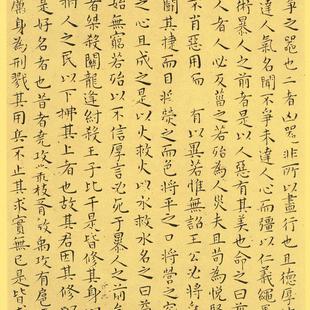 爭之噐也二者凶噐非所以盡行也且德厚
達人氣名聞不爭未達人心而彊以仁義繩
術暴人之前者是以人惡有其美也命之曰菑
人者人必反菑之若殆為人菑夫且苟為悅
不肖惡用而有以異若惟無詔王公必將
鬭其捷而目將熒之而色將平之口將營之
之心且成之是以火救火以水救水名之曰益
始無窮若殆以不信厚言必死于暴人之前
者桀殺關龍逢紂殺王子比干是皆修其身
拊人之民以下拂其上者也故其君因其修
是好名者也昔者堯攻叢枝胥敖禹攻有扈
厲身為刑戮其用兵不止其求實無已是皆